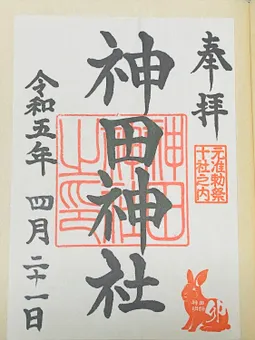 奉拝
元准勅祭
十社之内
神田神社
神田
神社
之印
卯
令和五年 四月二十一日